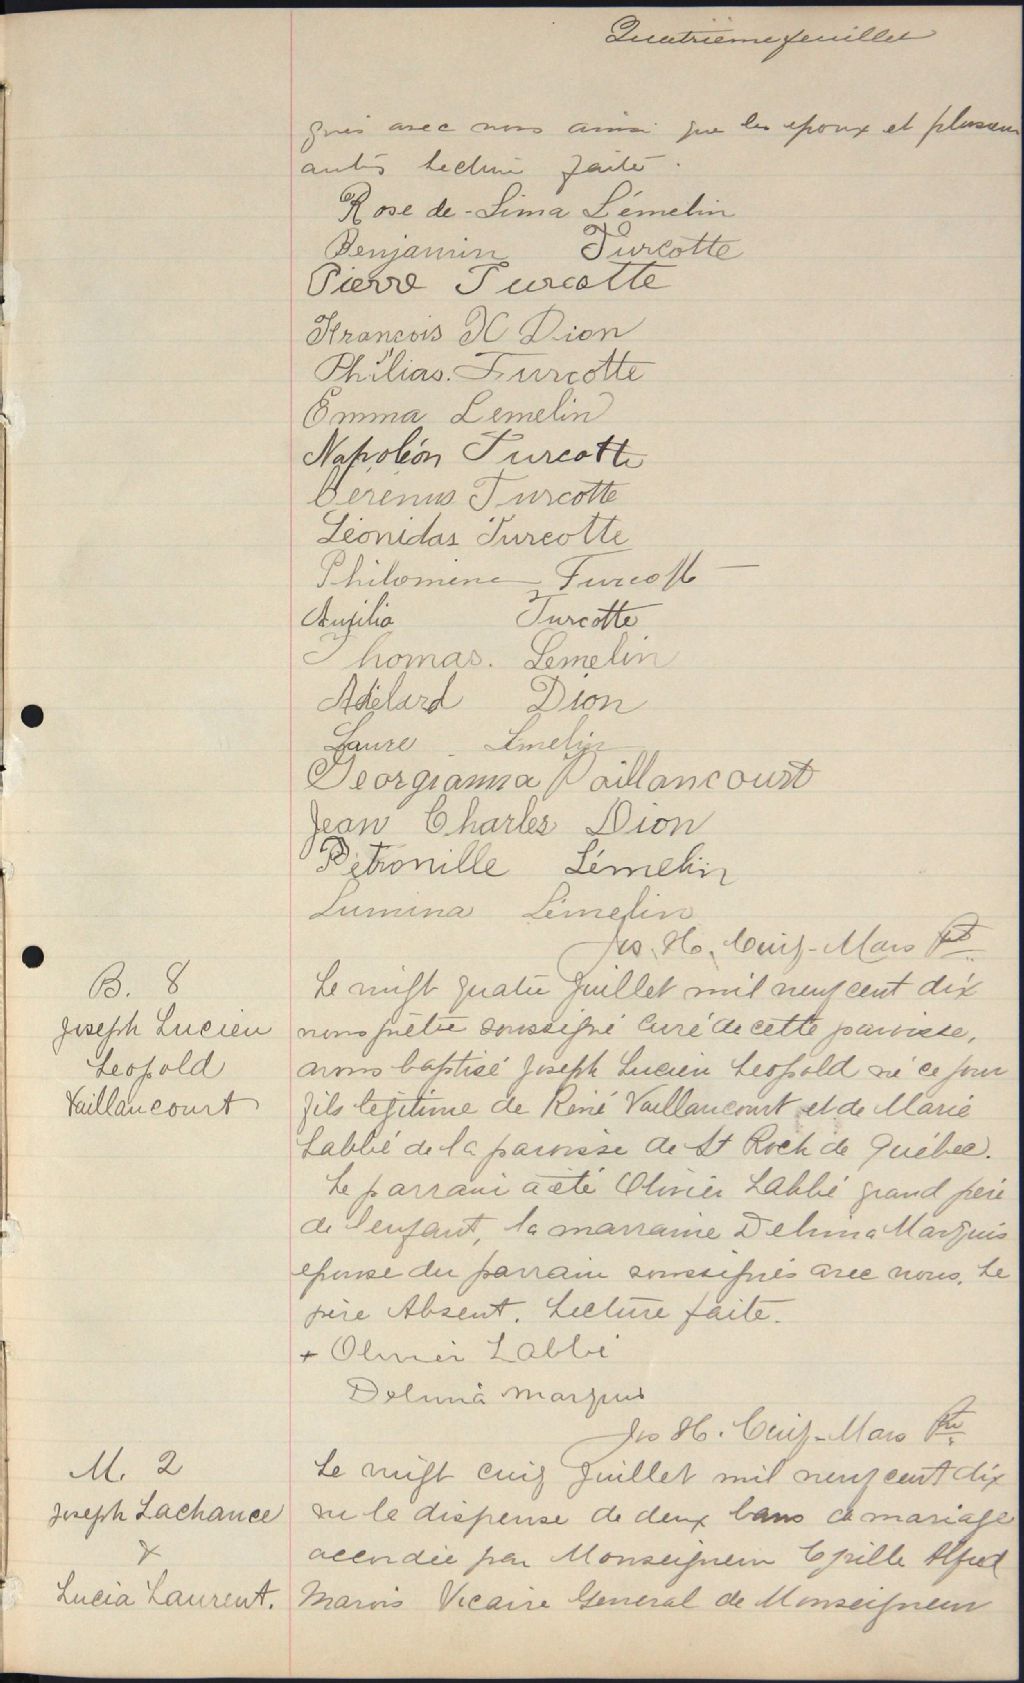 Quatrième feuillet
gnés avec nous ainsi que les epoux et plusieurs
autres Lecture faite.
Rose de-Lima Lémelin
Benjamin Turcotte
Pierre Turcotte
Francois X Dion
Philias. Turcotte
Emma Lemelin
Napoléon Turcotte
Turcotte
Léonidas Turcotte
Philomene Turcotte
Turcotte
Thomas. Lemelin
Adélard Dion
Laure Lemelin
Georgianna Vaillancourt
Jean Charles Dion
Pétronille Lémelin
Lumina Lémelin
Jos. H. Cinq-Mars Ptre
B. 8
Joseph Lucien
Leopold
Vaillancourt
Le vingt quatre Juillet mil neuf cent dix
nous prêtre soussigné curé de cette paroisse,
avons baptisé Joseph Lucien Leopold né ce jour
fils legitime de René Vaillancourt et de Marie
Labbé de la paroisse de St Roch de Québec.
Le parrain a été Olivier Labbé grand père
de l'enfant, la marraine Delima Marquis
epouse du parrain soussignés avec nous. Le
père Absent. Lecture faite.
+ Olivier Labbé
Delima Marquis
Jos H. Cinq-Mars Ptre
M. 2
Joseph Lachance
&
Lucia Laurent.
Le vingt cinq Juillet mil neuf cent dix
vu la dispense de deux bans de mariage
accordée par Monseigneur Cyrille Alfred
Marois Vicaire General de Monseigneur